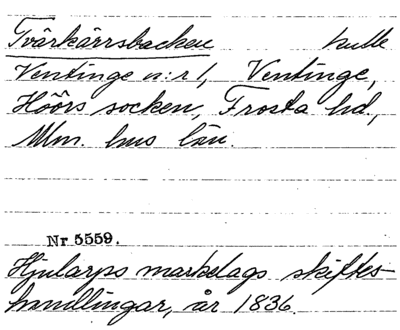 Tvärkärrsbacken kulle
Ventinge n:r 1, Ventinge,
Höörs socken, Frosta hd,
Mlm. hus län.
Nr 5559.
Hjularps markelags skiftes-
handlingar, år 1836.